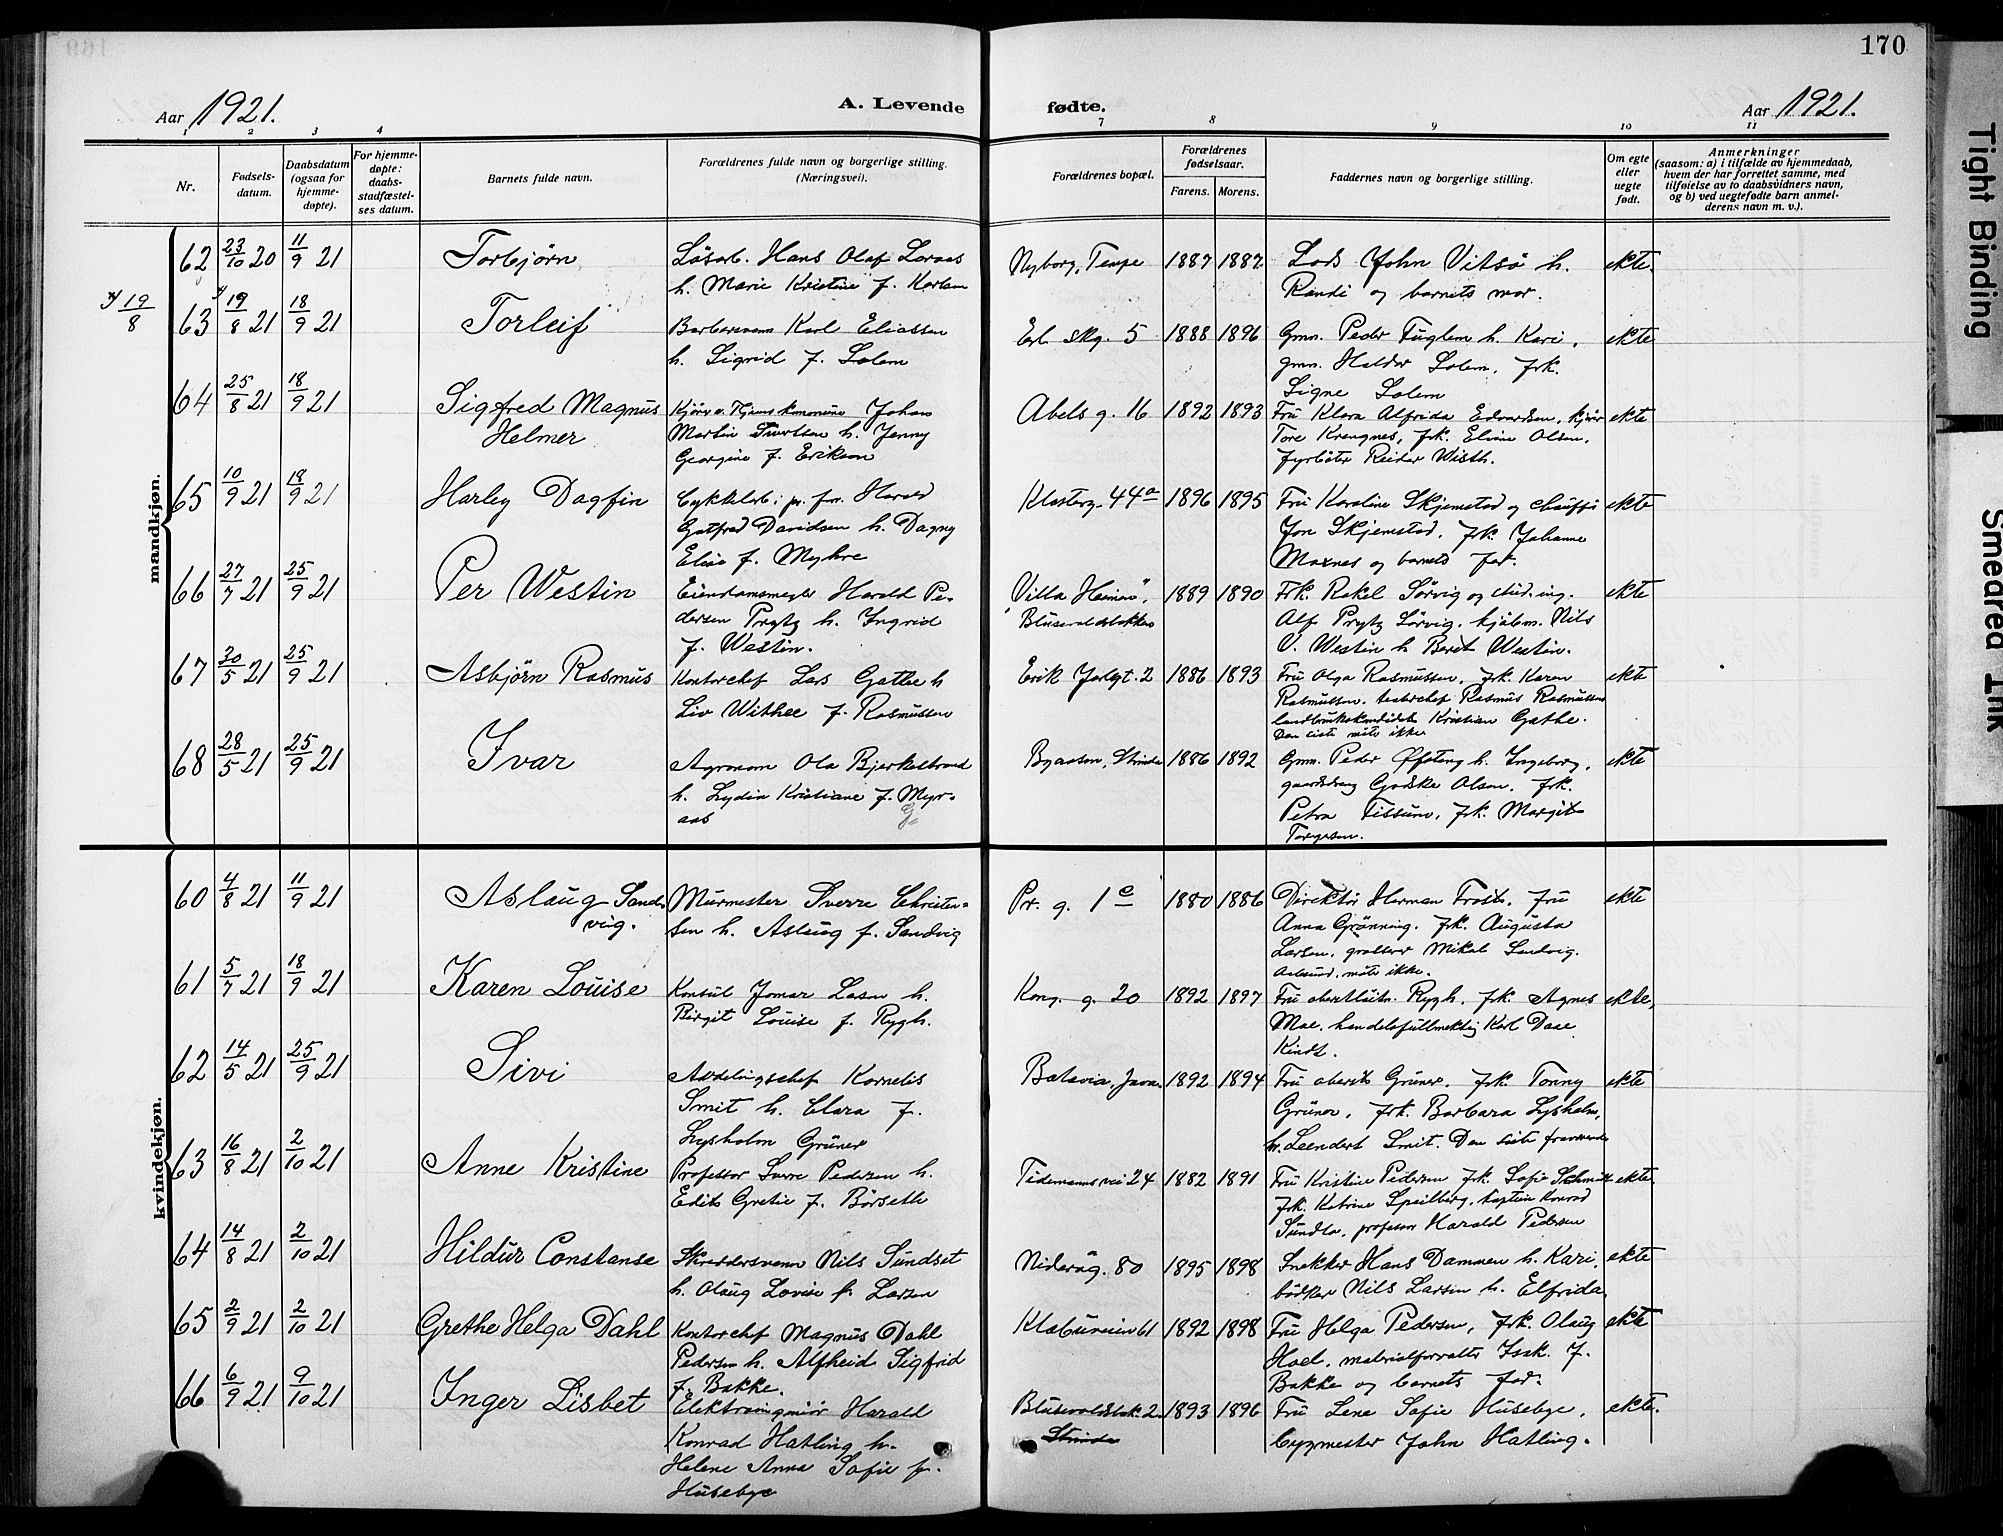 170
Aar 1921.
A. Levende
fødte.
Aar 1921.
1 2 3 4 7 8 9 10 11
Nr.
Fødsels-
datum.
Daabsdatum
(ogsaa for
hjemme-
døpte).
For hjemme-
døpte:
daabs-
stadfæstel-
ses datum.
Barnets fulde navn.
Forældrenes fulde navn og borgerlige stilling.
(Næringsvei).
Forældrenes bopæl.
Forældrenes
fødselsaar.
Farens. Morens.
Faddernes navn og borgerlige stilling.
Om egte
eller
uegte
født.
Anmerkninger
(saasom: a) i tilfælde av hjemmedaab,
hvem der har forrettet samme, med
tilføielse av to daabsvidners navn,
og b) ved uegtefødte barn anmel-
derens navn m. v.).
mandkjøn.
62 23/10 20 11/9 21 Torbjørn Løsarb. Hans Olaf
h. Marie Kristine f.
Nyborg, Tempe 1887 1887 Lods John Vitsø h.
Randi og barnets mor.
ekte.
19/8 63 19/8 21 18/9 21 Torleif Barbersvenn Karl Eliassen
h. Sigrid f. Solem
Erl. Skg. 5 1888 1896 Gmn. Peder Fuglem h. Kari,
gmn. Haldor Solem, frk.
Signe Solem
ekte
64 25/8 21 18/9 21 Sigfred Magnus
Helmer
Johan
Martin h. Jenny
Georgine f. Erikson
Abels g. 16 1892 1893 Fru Klara Alfrida Edvardsen, kjør
Tore Krengnes, frk. Elvine Olsen,
fyrbøter Reidar Wisth.
ekte
65 10/9 21 18/9 21 Harley Dagfin Harald
Gotfred Davidsen h. Dagny
Elise f. Myhre
Klosterg. 44a 1896 1895 Fru Karoline Skjemstad og chauffør
Jon Skjemstad, frk. Johanne
Moxnes og barnets far.
ekte
66 27/7 21 25/9 21 Per Westin Eiendomsmegler Harald Pe-
dersen Prytz h. Ingrid
f. Westin.
Villa
1889 1890 Frk. Rakel Sørvig og stud. ing.
Alf Prytz Sørvig, kjøbm. Nils
O. Westin h. Berit Westin.
ekte
67 30/5 21 25/9 21 Asbjørn Rasmus Kontorchef Lars Gathe h
Liv Withee f. Rasmussen
Erik Jarlsgt. 2 1886 1893 Fru Olga Rasmussen, frk. Karen
Rasmussen, Rasmus Rasmussen
landbrukskandidat Kristian Gathe.
Den siste møtte ikke
ekte
68 28/5 21 25/9 21 Ivar Agronom Ola Bjerkestrand
h. Lydia Kristiane f. Myr-
aas
Byaasen, Strinda 1886 1892 Gmn. Peder Øfsteng h. Ingeborg,
Godske Olsen, frk.
Petra Tissum, frk. Margit
Torgersen.
ekte
kvindekjøn.
60 4/8 21 11/9 21 Aslaug Sand-
vig.
Murmester Sverre Christen-
sen h. Aslaug f. Sandvig
Pr. g. 1c 1880 1886 Direktør Herman Frost, Fru
Anna Grønning, frk. Augusta
Larsen, Mikal Sandvig,
Aalesund, møtte ikke.
ekte
61 5/7 21 18/9 21 Karen Louise Konsul Jomar h.
Birgit Louise f. Rygh.
Kong. g. 20 1892 1897 Fru oberstløitn. Rygh, frk. Agnes
Moe, handelsfullmektig Karl Daae
Kindt.
ekte,
62 14/5 21 25/9 21 Sivi Avdelingschef Kornelis
Smit h. Clara f.
Lysholm Grüner
Batavia, Java 1892 1894 Fru oberst Grüner, frk. Tonny
Grüner, frk. Barbara Lysholm,
hr. Leendert Smit. Den siste fraværende
ekte
63 16/8 21 2/10 21 Anne Kristine Professor Sverre Pedersen h.
Edith Gretie f. Børseth
Tidemanns vei 24 1882 1891 Fru Kristine Pedersen frk. Sofie Schmidt
frk. Katrine Speilberg, kaptein Konrad
Sundlo, professor Harald Pedersen
ekte
64 14/8 21 2/10 21 Hildur Constanse Skreddersvenn Nils Sundset
h. Olaug Lovise f. Larsen
Niderøg. 80 1895 1898 Snekker Hans Dammen h. Kari,
bødker Nils Larsen h. Elfrida,
ekte
65 2/9 21 2/10 21 Grethe Helga Dahl Kontorchef Magnus Dahl
Pedersen h. Alfheid Sigfrid
f. Bakke.
Klæbuveien 61 1892 1898 Fru Helga Pedersen, frk. Olaug
Hoel, materialforvalter Isak J.
Bakke og barnets far.
ekte
66 6/9 21 9/10 21 Inger Lisbet Elektroingeniør Harald
Konrad Hatling h.
Helene Anna Sofie f.
Husebye
Blusevoldsbk. 2
Strinda
1893 1896 Fru Lene Sofie Husebye,
bygmester John Hatling.
ekte.
Tight Binding
Smeared Ink